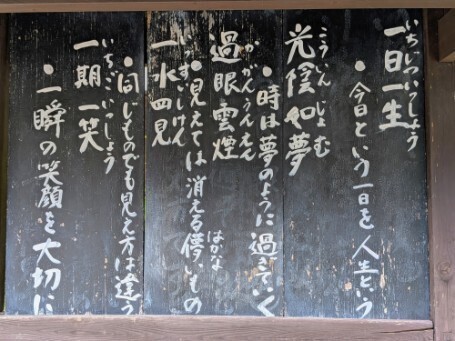 いちじついっしょう
一日一生
・今日という一日を人生という
こういんじょむ
光陰如夢
・時は夢のように過ぎていく
かがんうんえん
過眼雲煙
はかな
・見えては消える儚いもの
いっすいしけん
一水四見
・同じものでも見え方は違う
いちごいっしょう
一期一笑
・一瞬の笑顔を大切に